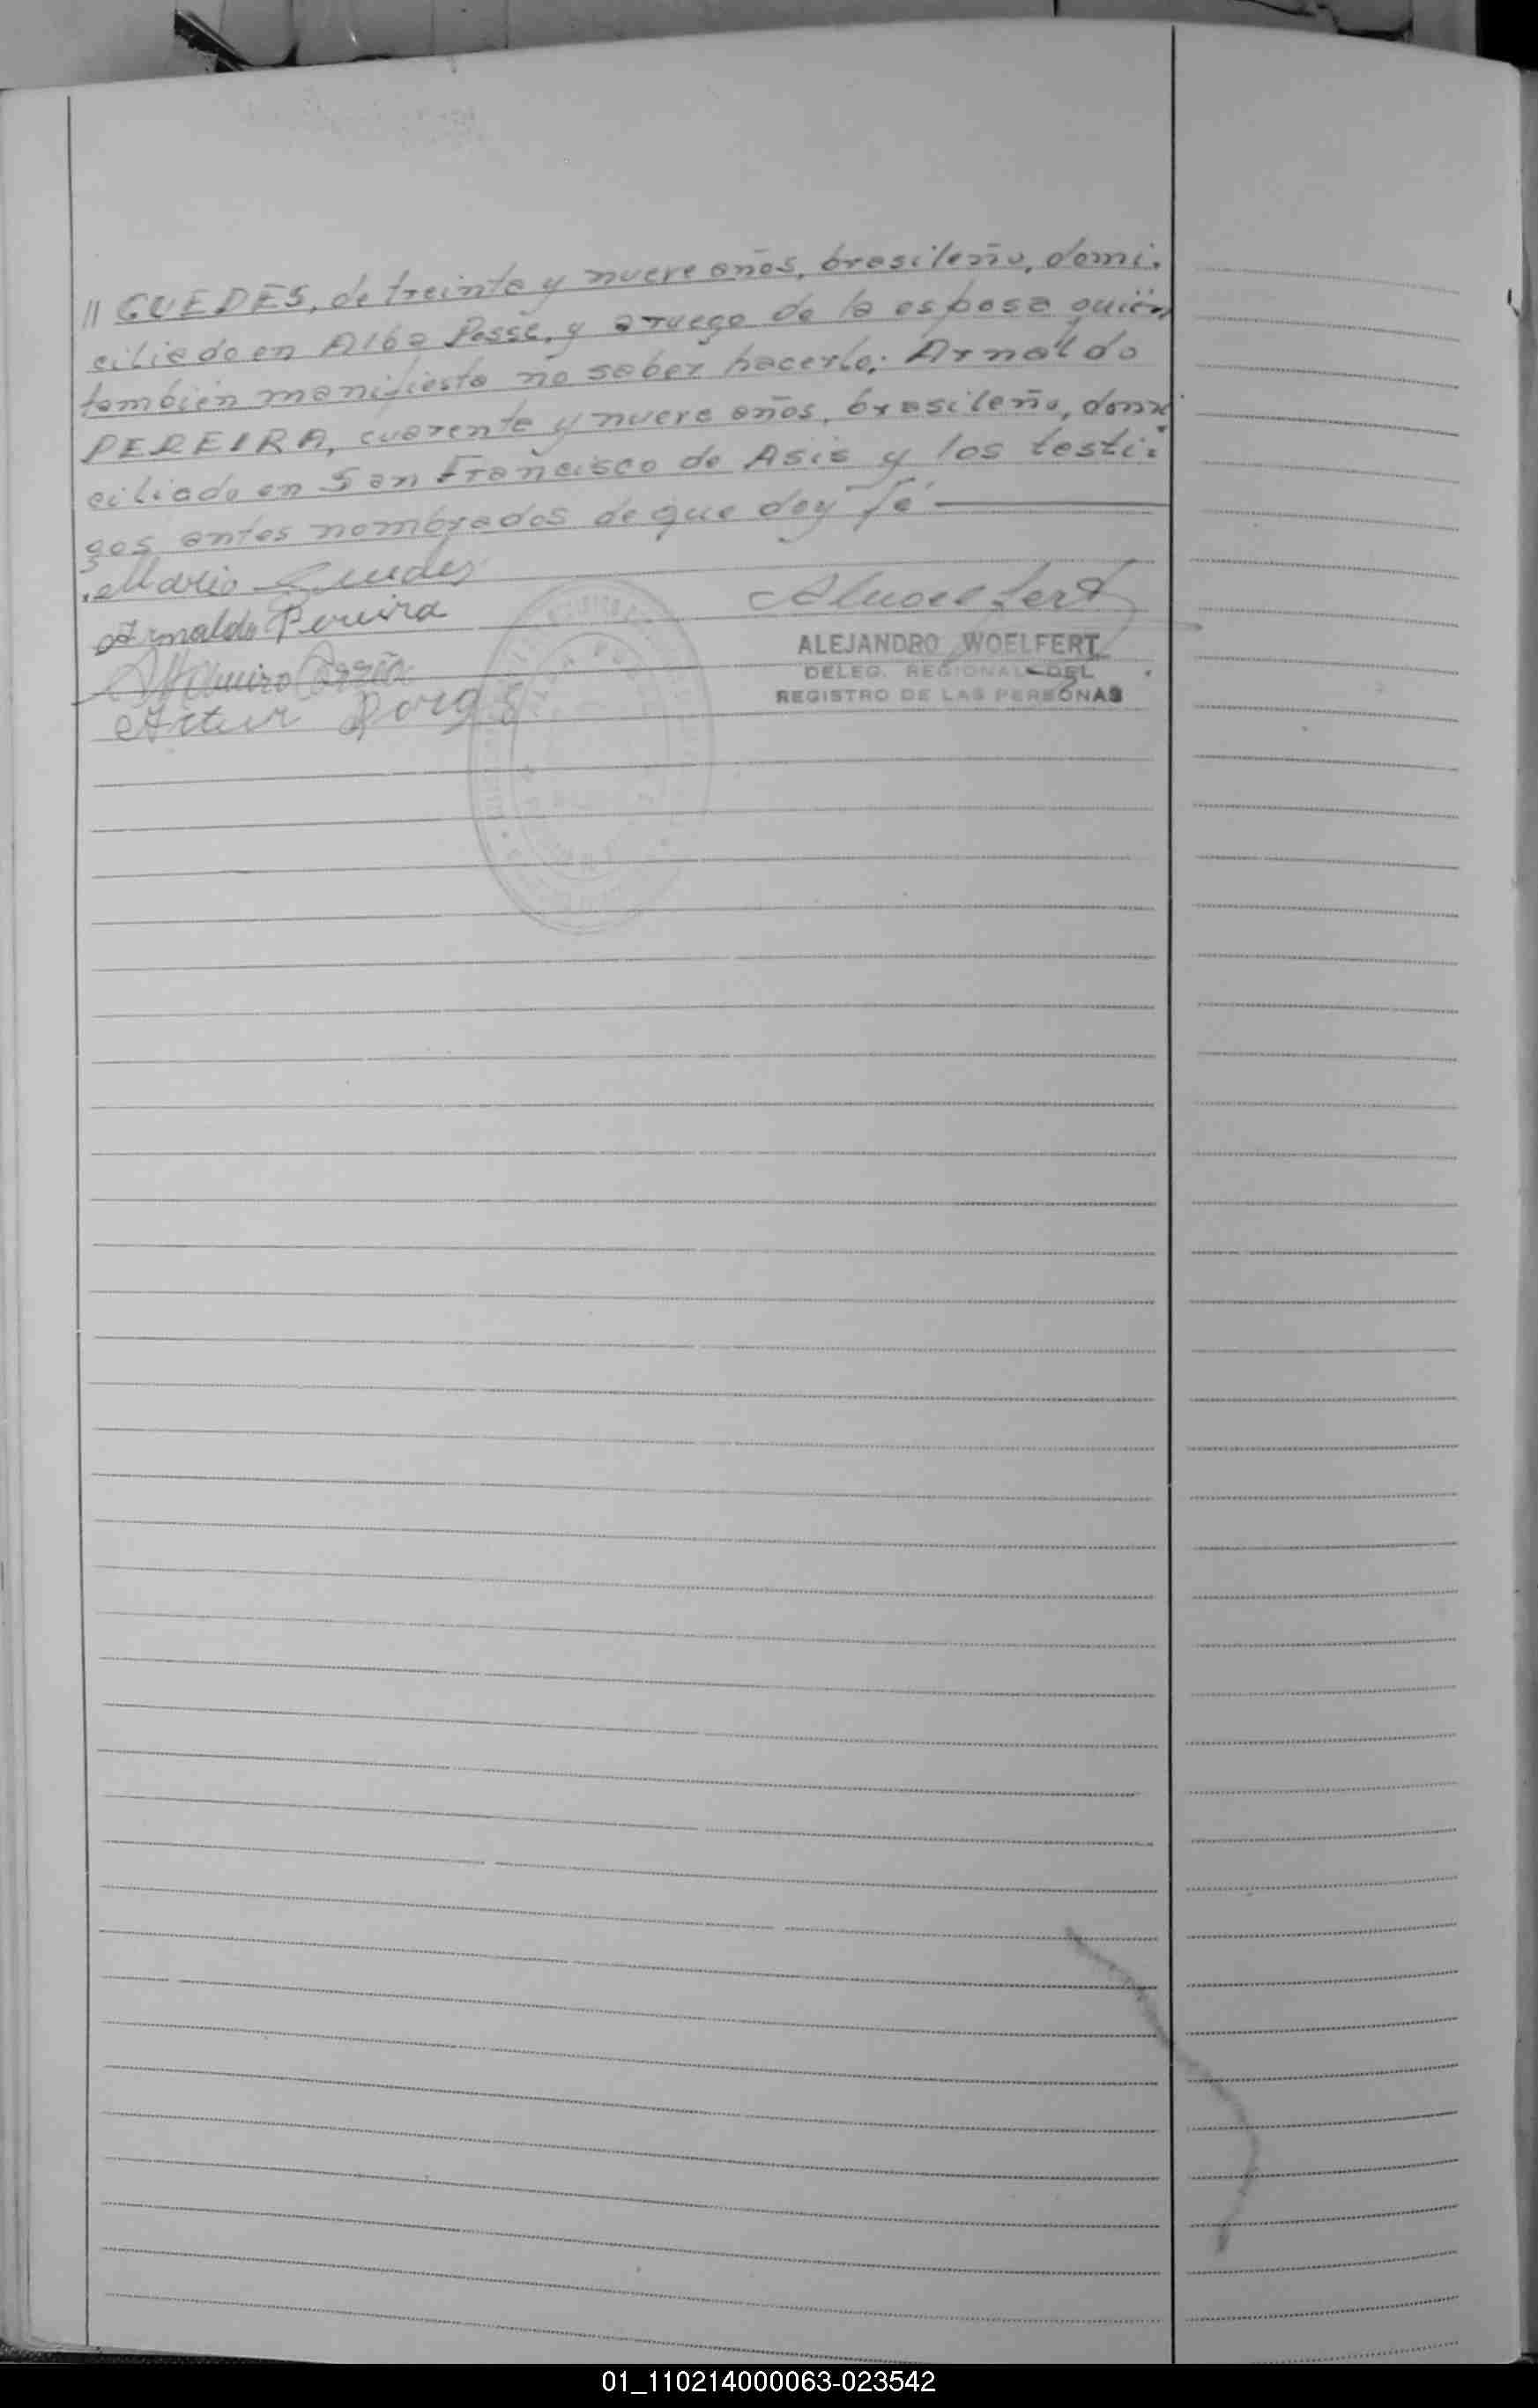 // GUEDES, de treinta y nueve años, brasileño, domi-
ciliado en Alba Posse, y a ruego de la esposa quién
también manifiesta no saber hacerlo; Arnaldo
PEREIRA, cuarenta y nueve años, brasileño, domi
ciliado en San Francisco de Asis y los testi-
gos antes nombrados de que doy fé
Mario Guedes
Arnaldo Pereira
Artur
ALEJANDRO WOELFERT
DELEG. REGIONAL DEL
REGISTRO DE LAS PERSONAS
01_110214000063-023542